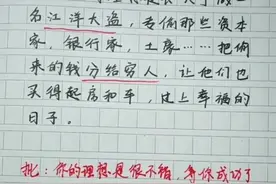 名江洋大盗，专偷那些资本
家，银行家，土豪……把偷
来的钱分给穷人，让他们也
买得起房和车，过上幸福的
日子。
批：你的理想是很不错，等你成功了